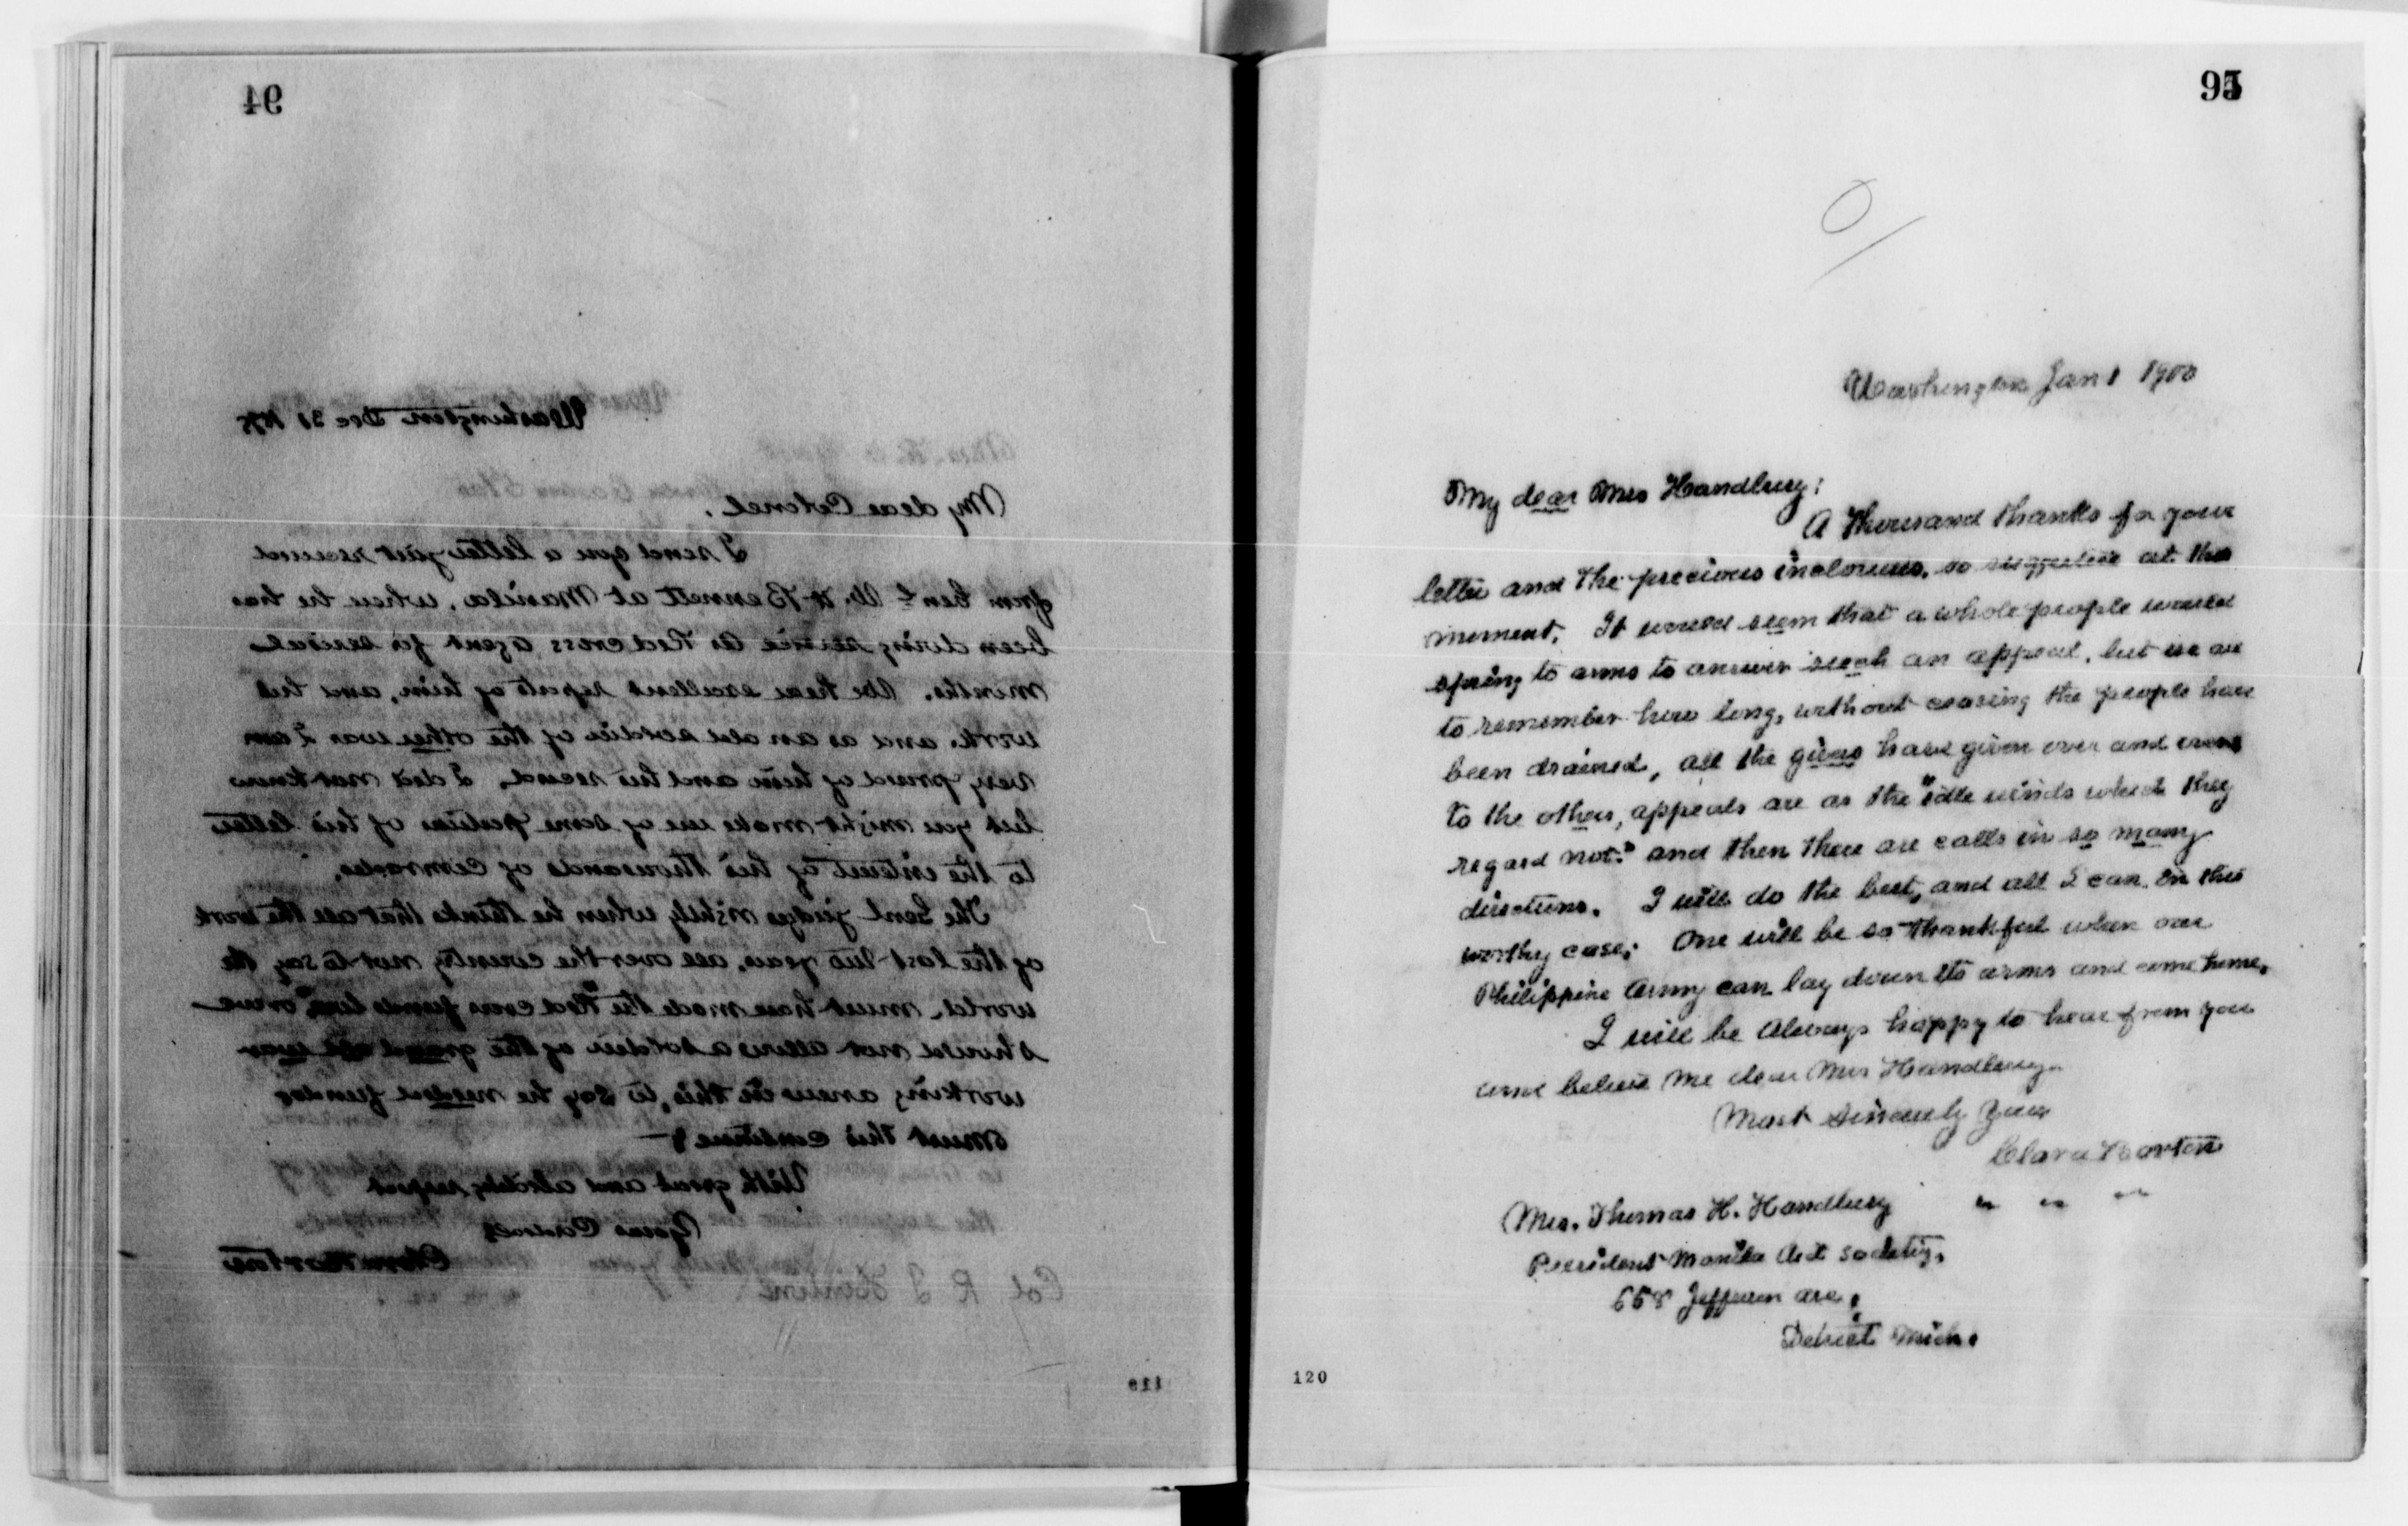 94
Washington Dec 31
My dear Colonel.
I send you a letter just received
from Genl W. H. Bennett at Manila, where he has
been doing service as Red cross agent for several
months. We have excellent reports of him, and his
work, and as an old soldier of the other war I am
very proud of him and his record. I did not know
but you might make use of some portion of his letter
to the interest of his thousands of comrades.
The Genl judges rightly when he thinks that all the work
of the last two years, all over the country not to say the
world, must have made the "Red cross funds low" or we
should not allow a soldier of the grand old war
working anew in this, to say he needed funds
must this continue?
With great and abiding respect
Yours Cordially
Clara Barton
Col R J Hinton
119
95
Washington Jan 1 1900
My dear Mrs Handbury:
A thousand thanks for your
letter and the precious inclosures, so suggestive at this
moment. It would seem that a whole people would
spring to arms to answer such an appeal, but we are
to remember how long, without ceasing the people have
been drained, all the givers have given over and over
to the others, appeals are as the "idle winds which they
regard not." and then there are calls in so many
directions. I will do the best, and all I can in this
worthy case. One will be so thankful when our
Philippine Army can lay down its arms and come home.
I will be always happy to hear from you
and believe me dear Mrs Handbury
Most Sincerely Yours
Clara Barton
Mrs. Thomas H. Handbury " " "
President Manila Aid Society.
Jefferson ave.
Detroit Mich.
120